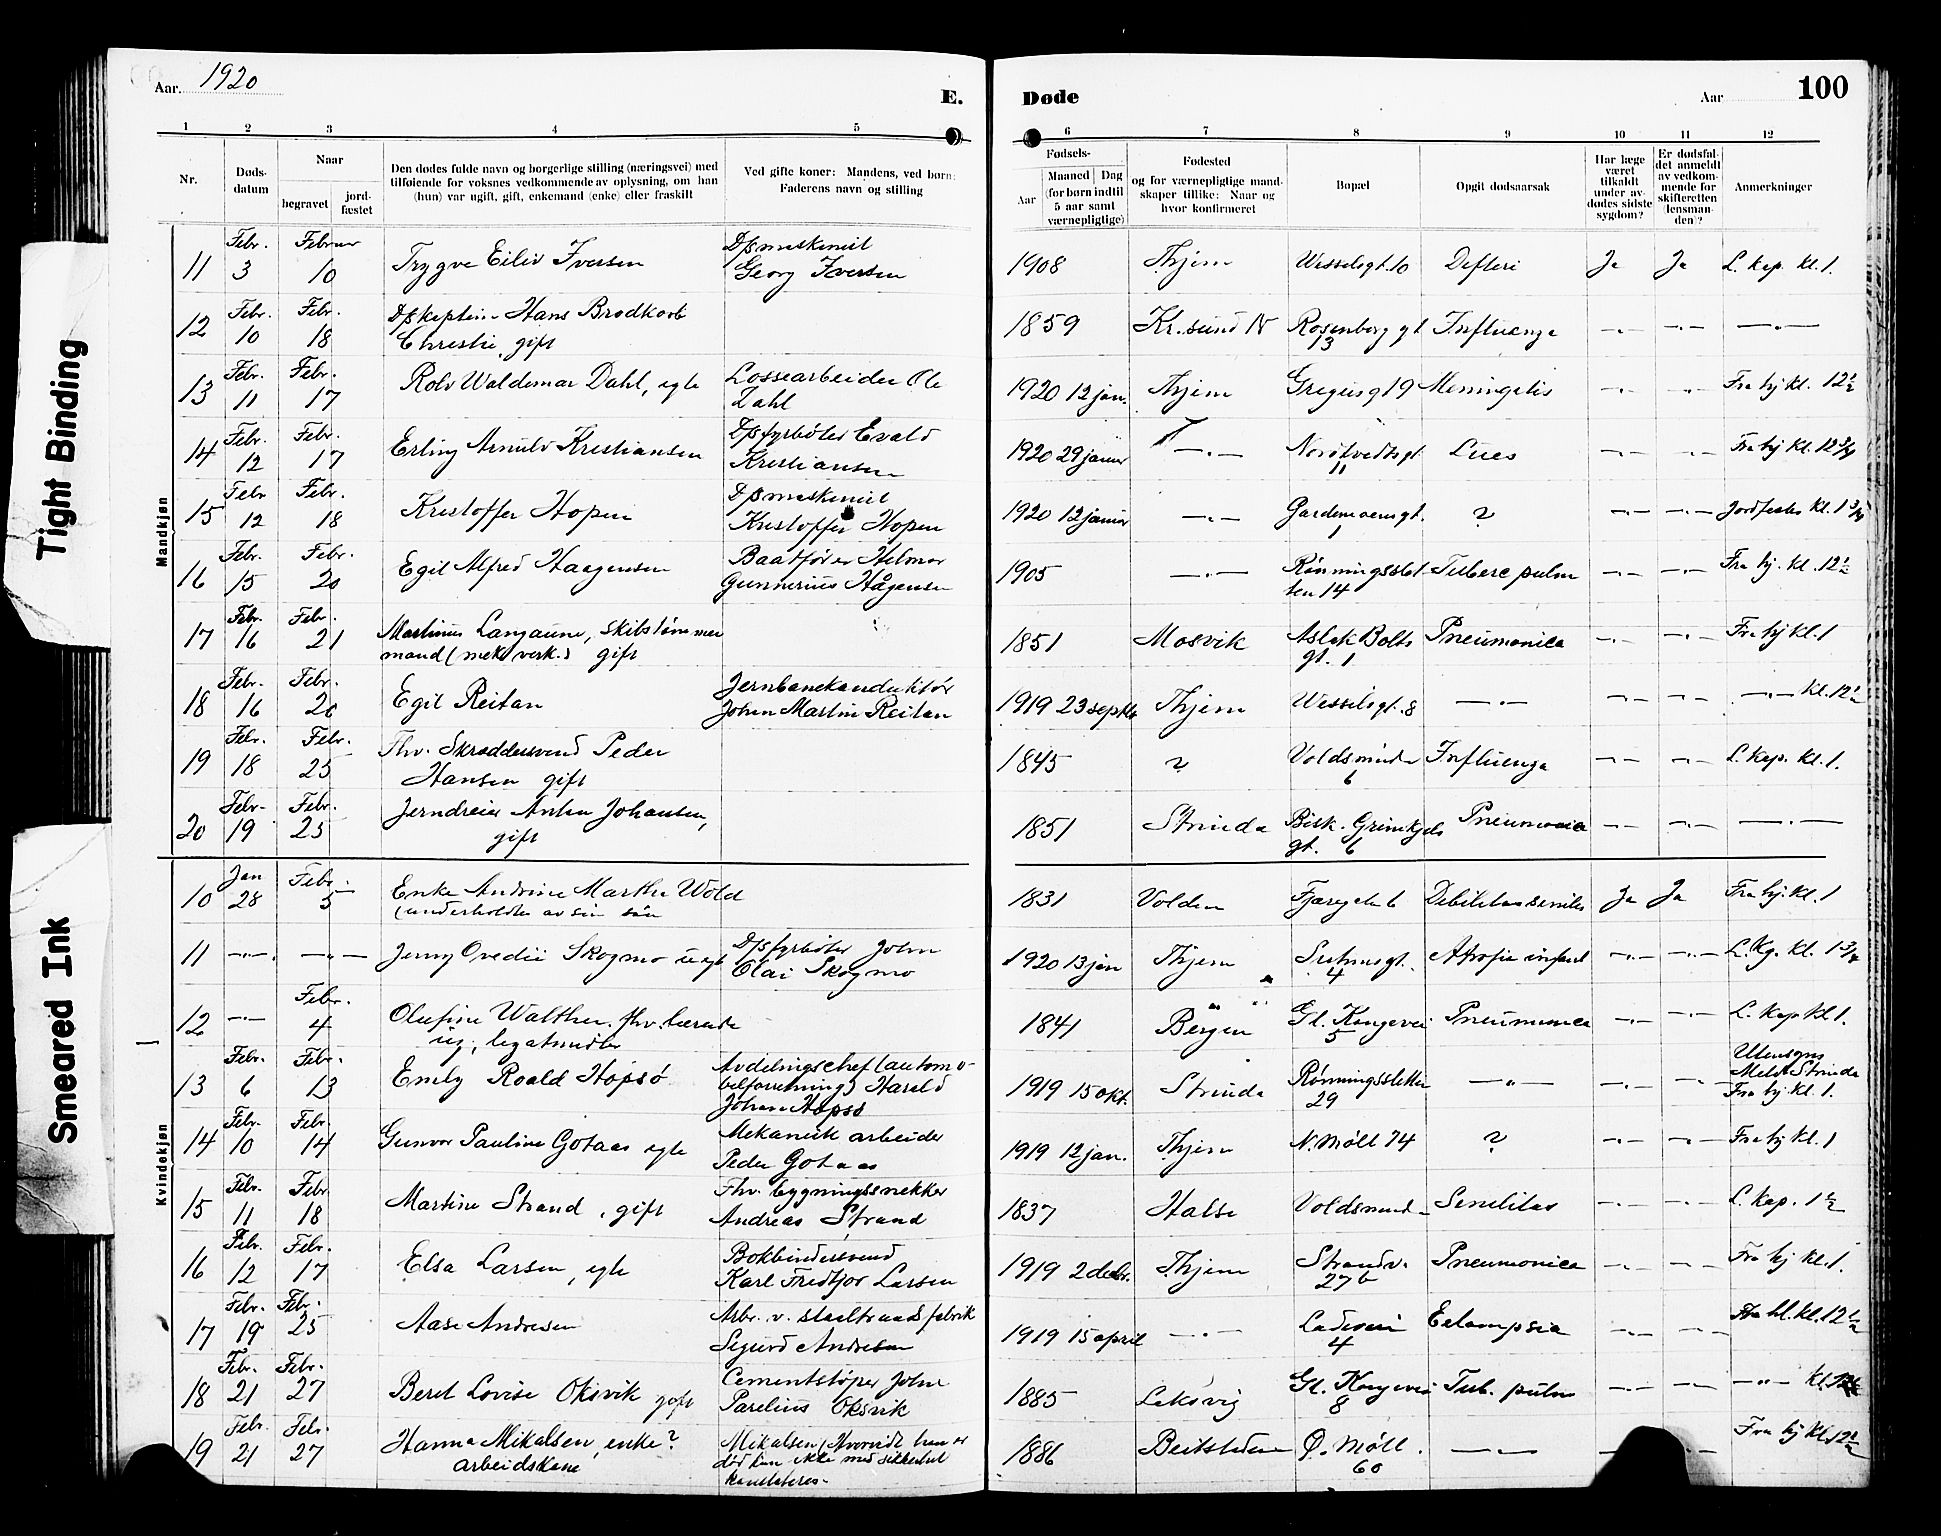 Aar. 1920
E.
Døde
Aar
100
1 2 3 4 5 6 7 8 9 10 11 12
Nr.
Døds-
datum
Naar
begravet
jord-
fæstet
Den dødes fulde navn og borgerlige stilling (næringsvei) med
tilføiende for voksnes vedkommende av oplysning, om han
(hun) var ugift, gift, enkemand (enke) eller fraskilt
Ved gifte koner: Mandens, ved børn:
Faderens navn og stilling
Fødsels-
Aar
Maaned Dag
(for børn indtil
5 aar samt
værnepligtige)
Fødested
og for værnepligtige mand-
skaper tillike: Naar og
hvor konfirmeret
Bopæl
Opgit dødsaarsak
Har læge
været
tilkaldt
under av-
dødes sidste
sygdom?
Er dødsfal-
det anmeldt
av vedkom-
mende for
skifteretten
(lensman-
den)?
Anmerkninger
Tight Binding
Smeared Ink
Mandkjøn
11 Febr. 3 Februar 10 Trygve Eiliv Iversen D/s maskinist
Georg Iversen 1908 Thjem Wesselsgt. 10 Difteri Ja Ja L. kap. kl. 1.
12 Febr. 10 Febr. 18 D/s kaptein Hans Brodkorb
Christie, gift 1859 Kr.sund N Rosenborg gt
13 Influenza -"- -"- -"-
13 Febr. 11 Febr. 17 Rolv Waldemar Dahl, egte Lossearbeider Ole
Dahl 1920 12 jan. Thjem Gregusgt 9 Meningitis -"- -"- Fra hj kl. 12 1/2
14 Febr. 12 Febr. 17 Erling Arnulv Kristiansen D/s fyrbøter Evald
Kristiansen 1920 29 januar -"- 11 Lues -"- -"- Fra hj kl. 12 3/4
15 Febr 12 Febr. 18 Kristoffer Hopen D/s maskinist
Kristoffer Hopen 1920 12 januar -"- Gardemoensgt.
1 ? -"- -"- Jordfestes kl. 1 3/4
16 Febr. 15 Febr. 20 Egil Alfred Haagensen Baatfører Helmer
Gunnerius Hågensen 1905 -"- Rønningsslet
ten 14 Tuberc pulm -"- -"- Fra hj. kl. 12 1/2
17 Febr. 16 Febr. 21 Martinus Langaune, skibstømmer
mand (mek verk.) gift 1851 Mosvik Aslak Bolts
gt. 1 Pneumonica -"- -"- Fra hj kl. 1
18 Febr. 16 Febr. 20 Egil Reitan Jernbanekonduktør
Johan Martin Reitan 1919 23 septbr Thjem Wesselsgt. 8 -"- -"- -"- -"- kl. 12 1/2
19 Febr. 18 Febr. 25 Fhv. Skræddersvend Peder
Hansen gift 1845 ? Voldsminde
6 Influenza -"- -"- L. kap. kl. 1.
20 Febr. 19 Febr. 25 Jerndreier Anton Johansen,
gift 1851 Strinda Bisk. Grimkjels
gt. 6 Pneumonica -"- -"- -"-
Kvindekjøn
10 Jan 28 Febr. 5 Enke Andrine Martha Wold
(underholdtes av sin søn 1831 Volden Fjæregaten 6 Debilitas senilis Ja Ja Fra hj. kl. 1
11 -"- -"- Jenny Ovedie Skogmo uegt D/s fyrbøter John
Olai Skogmo 1920 13 jan Thjem 4 Atrofia infant -"- -"- L. Kp. kl. 1 3/4
12 -"- Febr. 4 Olufine Walther. fhv. lærerinde
ug, legatnyder 1841 Bergen Gl. Kongevei
5 Pneumonica -"- -"- L. kap kl 1.
13 Febr. 6 Febr. 13 Emily Roald Hopsø Avdelingschef (automo-
bilforretning) Harald
Johan Hopsø 1919 15 okt. Strinda Rønningsletten
29 -"- -"- -"- Utensogns
Meldt Strinda
Fra hj. kl. 1.
14 Febr. 10 Febr 14 Gunvor Pauline Gotaas egte Mekanisk arbeider
Peder Gotaas 1919 12 jan. Thjem N. Møll 74 ? -"- -"- Fra hj kl. 1
15 Febr. 11 Febr 18 Martine Strand, gift Fhv. bygningssnekker
Andreas Strand 1837 Halse Voldsmind- Senilitas -"- -"- L. kap. 1 1/2
16 Febr. 12 Febr. 17 Elsa Larsen, egte Bokbindersvend
Karl Fredtjor Larsen 1919 2 decbr. Thjem Strandv.
27 b Pneumonica -"- -"- Fra hj kl. 1.
17 Febr. 19 Febr. 25 Aase Andresen Arbr. v. staaltraadfabrik
Sigurd Andresen 1919 15 april -"- Ladevei
4 Eclampsia -"- -"- Fra hl. kl. 12 1/2
18 Febr. 21 Febr. 27 Beret Lovise Oksvik gift Cementstøper John
Parelius Oksvik 1885 Leksvig Gl. Kongevei
8 Tub. pulm -"- -"- -"- kl.
19 Febr. 21 Febr. 27 Hanna Mikalsen, enke?
arbeidskone Mikalsen (Hvorvidt han er
død kan ikke med sikkerhet
konstateres. 1886 Beitstaden Ø. Møll.
60 -"- Fra hj kl 12 1/2